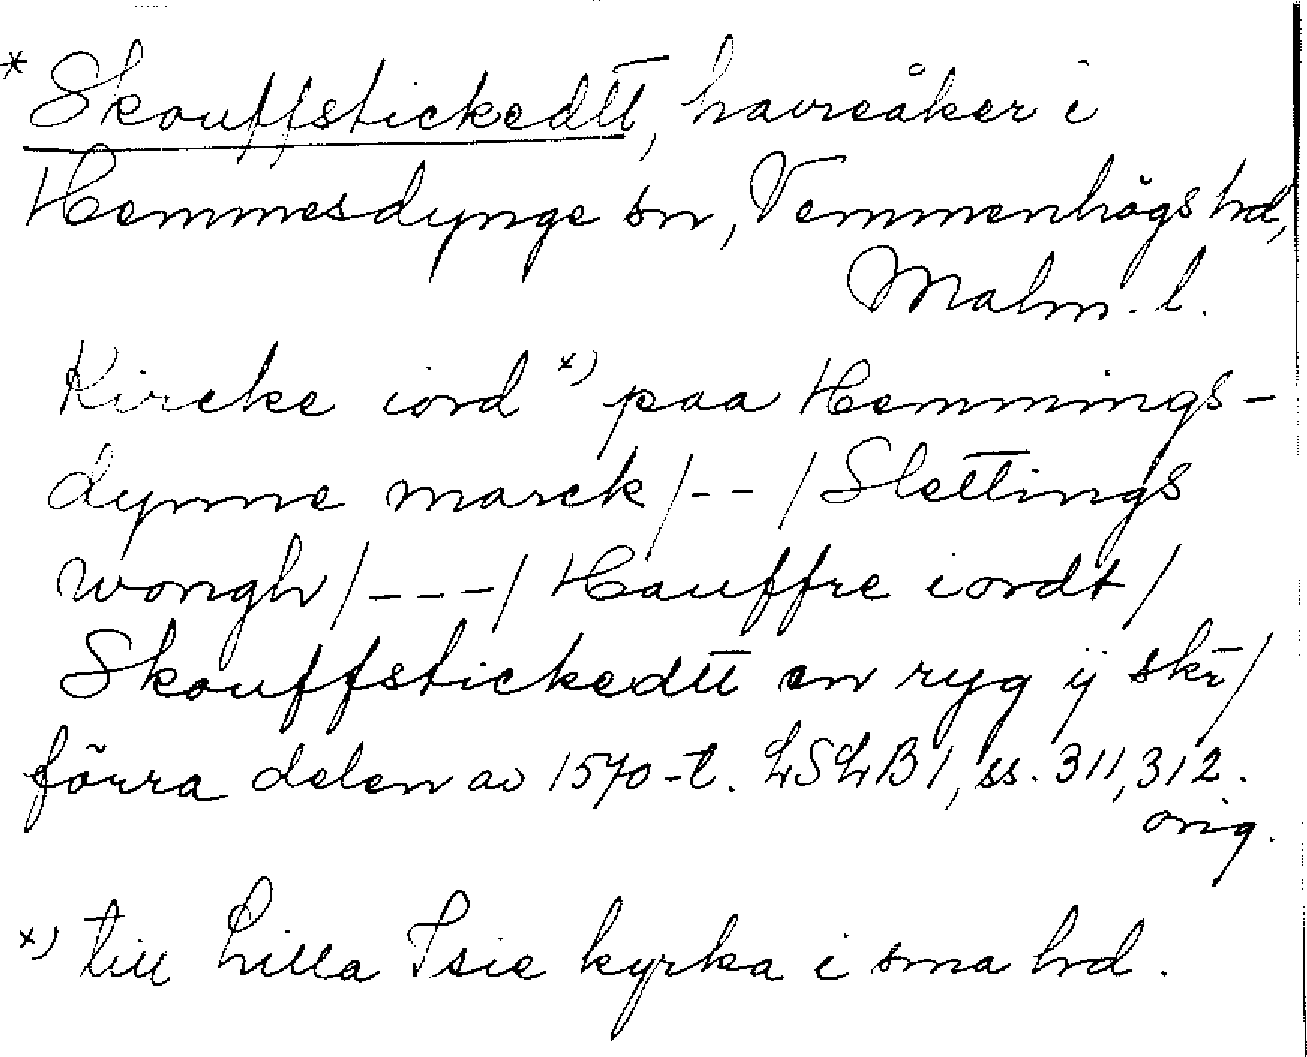 * Skouffstickedtt, havreåker i
Hemmesdynge sn, Vemmenhögs hd,
Malm. l.
Kircke iord x) paa Hemmings-
dynne marck /--/ Slettings
wongh /---/ Hauffre iordt /
Skouffstickedtt en ryg ij skr /
förra delen av 1570-t. LSLB 1, ss. 311, 312.
orig.
x) till Lilla Isie kyrka i sma hd.